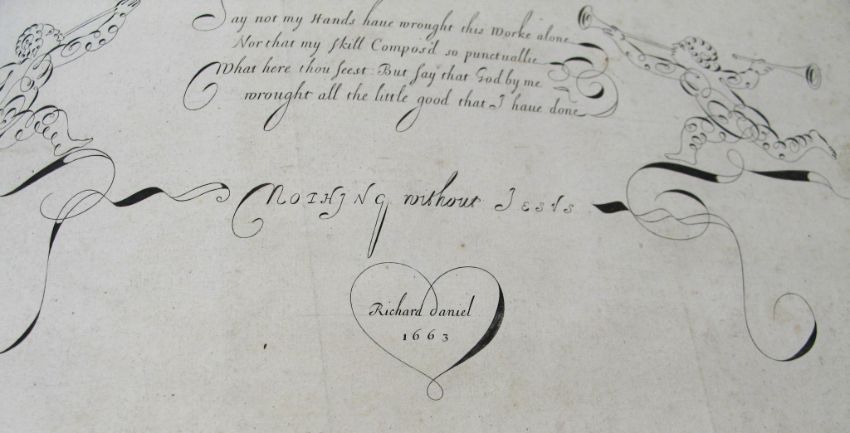 Say not my Hands haue wrought this Worke alone
Nor that my Skill Compos'd so punctuallie
What here thou seest: But say that God by me
wrought all the little good that I haue done
NOTHING without JESVS
Richard Daniel
1663